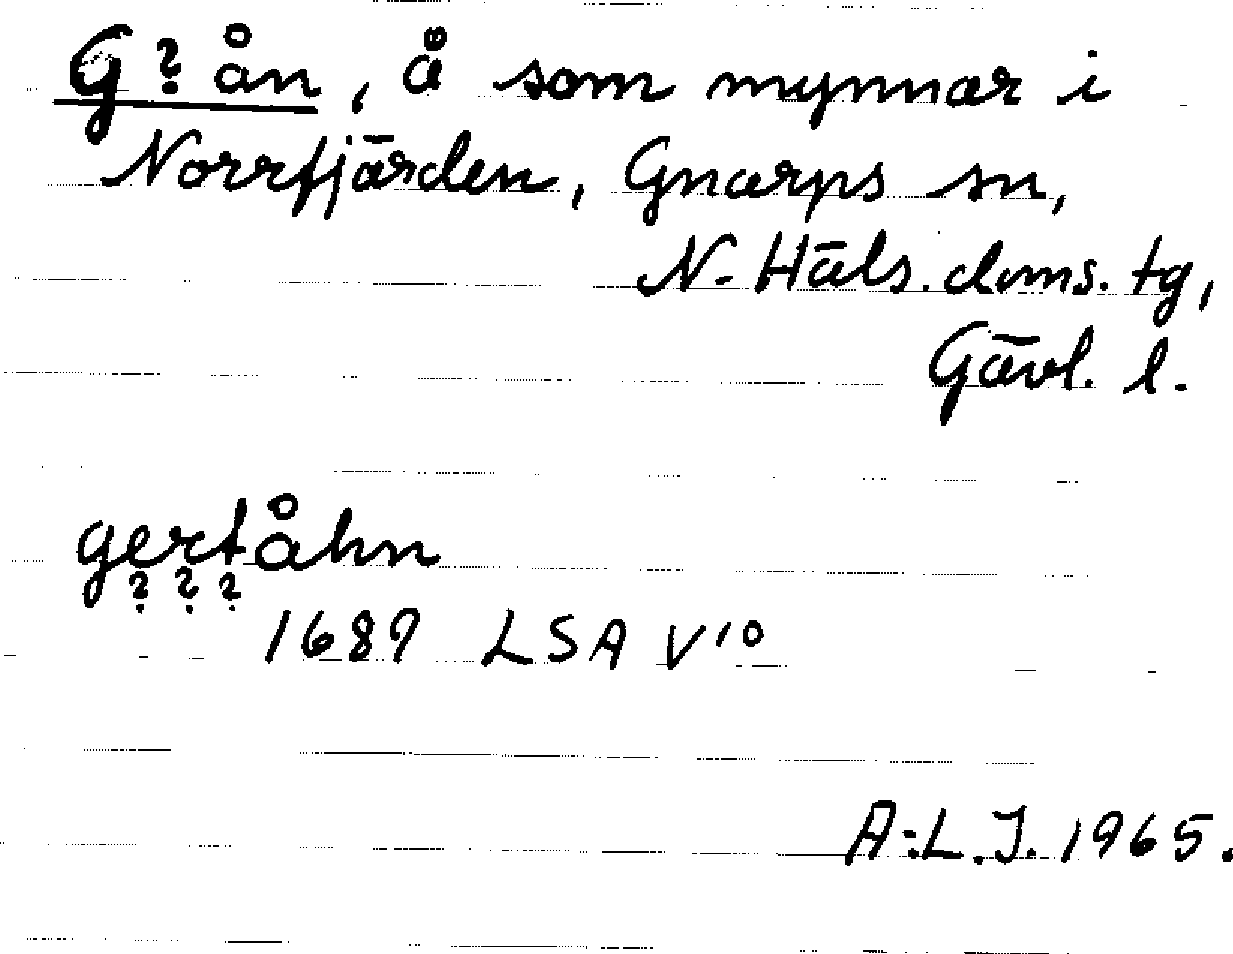 G ? ån, å som mynnar i
Norrfjärden, Gnarps sn,
N. Häls. doms. tg,
Gävl. l.
gertåhn
? ? ?
1689 LSA V10
A:L.J. 1965.